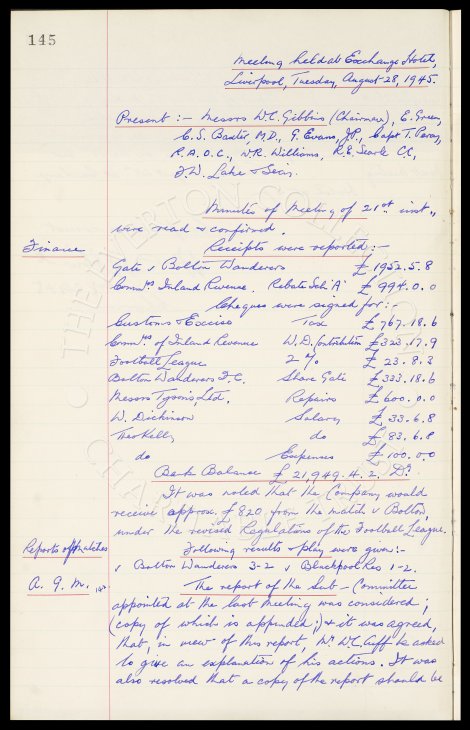 145
Meeting held at Exchange Hotel,
Liverpool, Tuesday, August 28, 1945.
Present :- Messrs W.C. Gibbins (Chairman), E. Green,
C.S. Baxter, M.D., G. Evans, J.P., Capt T. Percy,
R.A.O.C., W.R. Williams, R.E. Searle C.C.,
J.W. Lake & Secy.
Minutes of Meeting of 21st inst.,
were read & confirmed.
Finance Receipts were reported :-
Gate v Bolton Wanderers £ 1952.5.8
Commrs Inland Revenue. Rebate Sch 'A' £ 994.0.0
Cheques were signed for :-
Customs & Excise Tax £ 767.18.6
Commrs of Inland Revenue W.D. Contribution £ 323.17.9
Football League 2% £ 23.8.3
Bolton Wanderers F.C. Share Gate £ 333.18.6
Messrs Tysons Ltd. Repairs £ 600.0.0
W. Dickinson Salary £ 33.6.8
Theo Kelly do £ 83.6.8
do Expenses £ 100.0.0
Bank Balance £ 21,949.4.2. Dr.
It was noted that the Company would
receive approx. £820 from the match v Bolton,
under the revised Regulations of the Football League.
Reports of Matches Following results & play were given :-
v Bolton Wanderers 3-2 v Blackpool Res 1-2.
A.G.M. The report of the Sub-Committee
appointed at the last meeting was considered ;
(copy of which is appended ;) & it was agreed,
that, in view of this report, Mr W.C. Cuff be asked
to give an explanation of his actions. It was
also resolved that a copy of the report should be